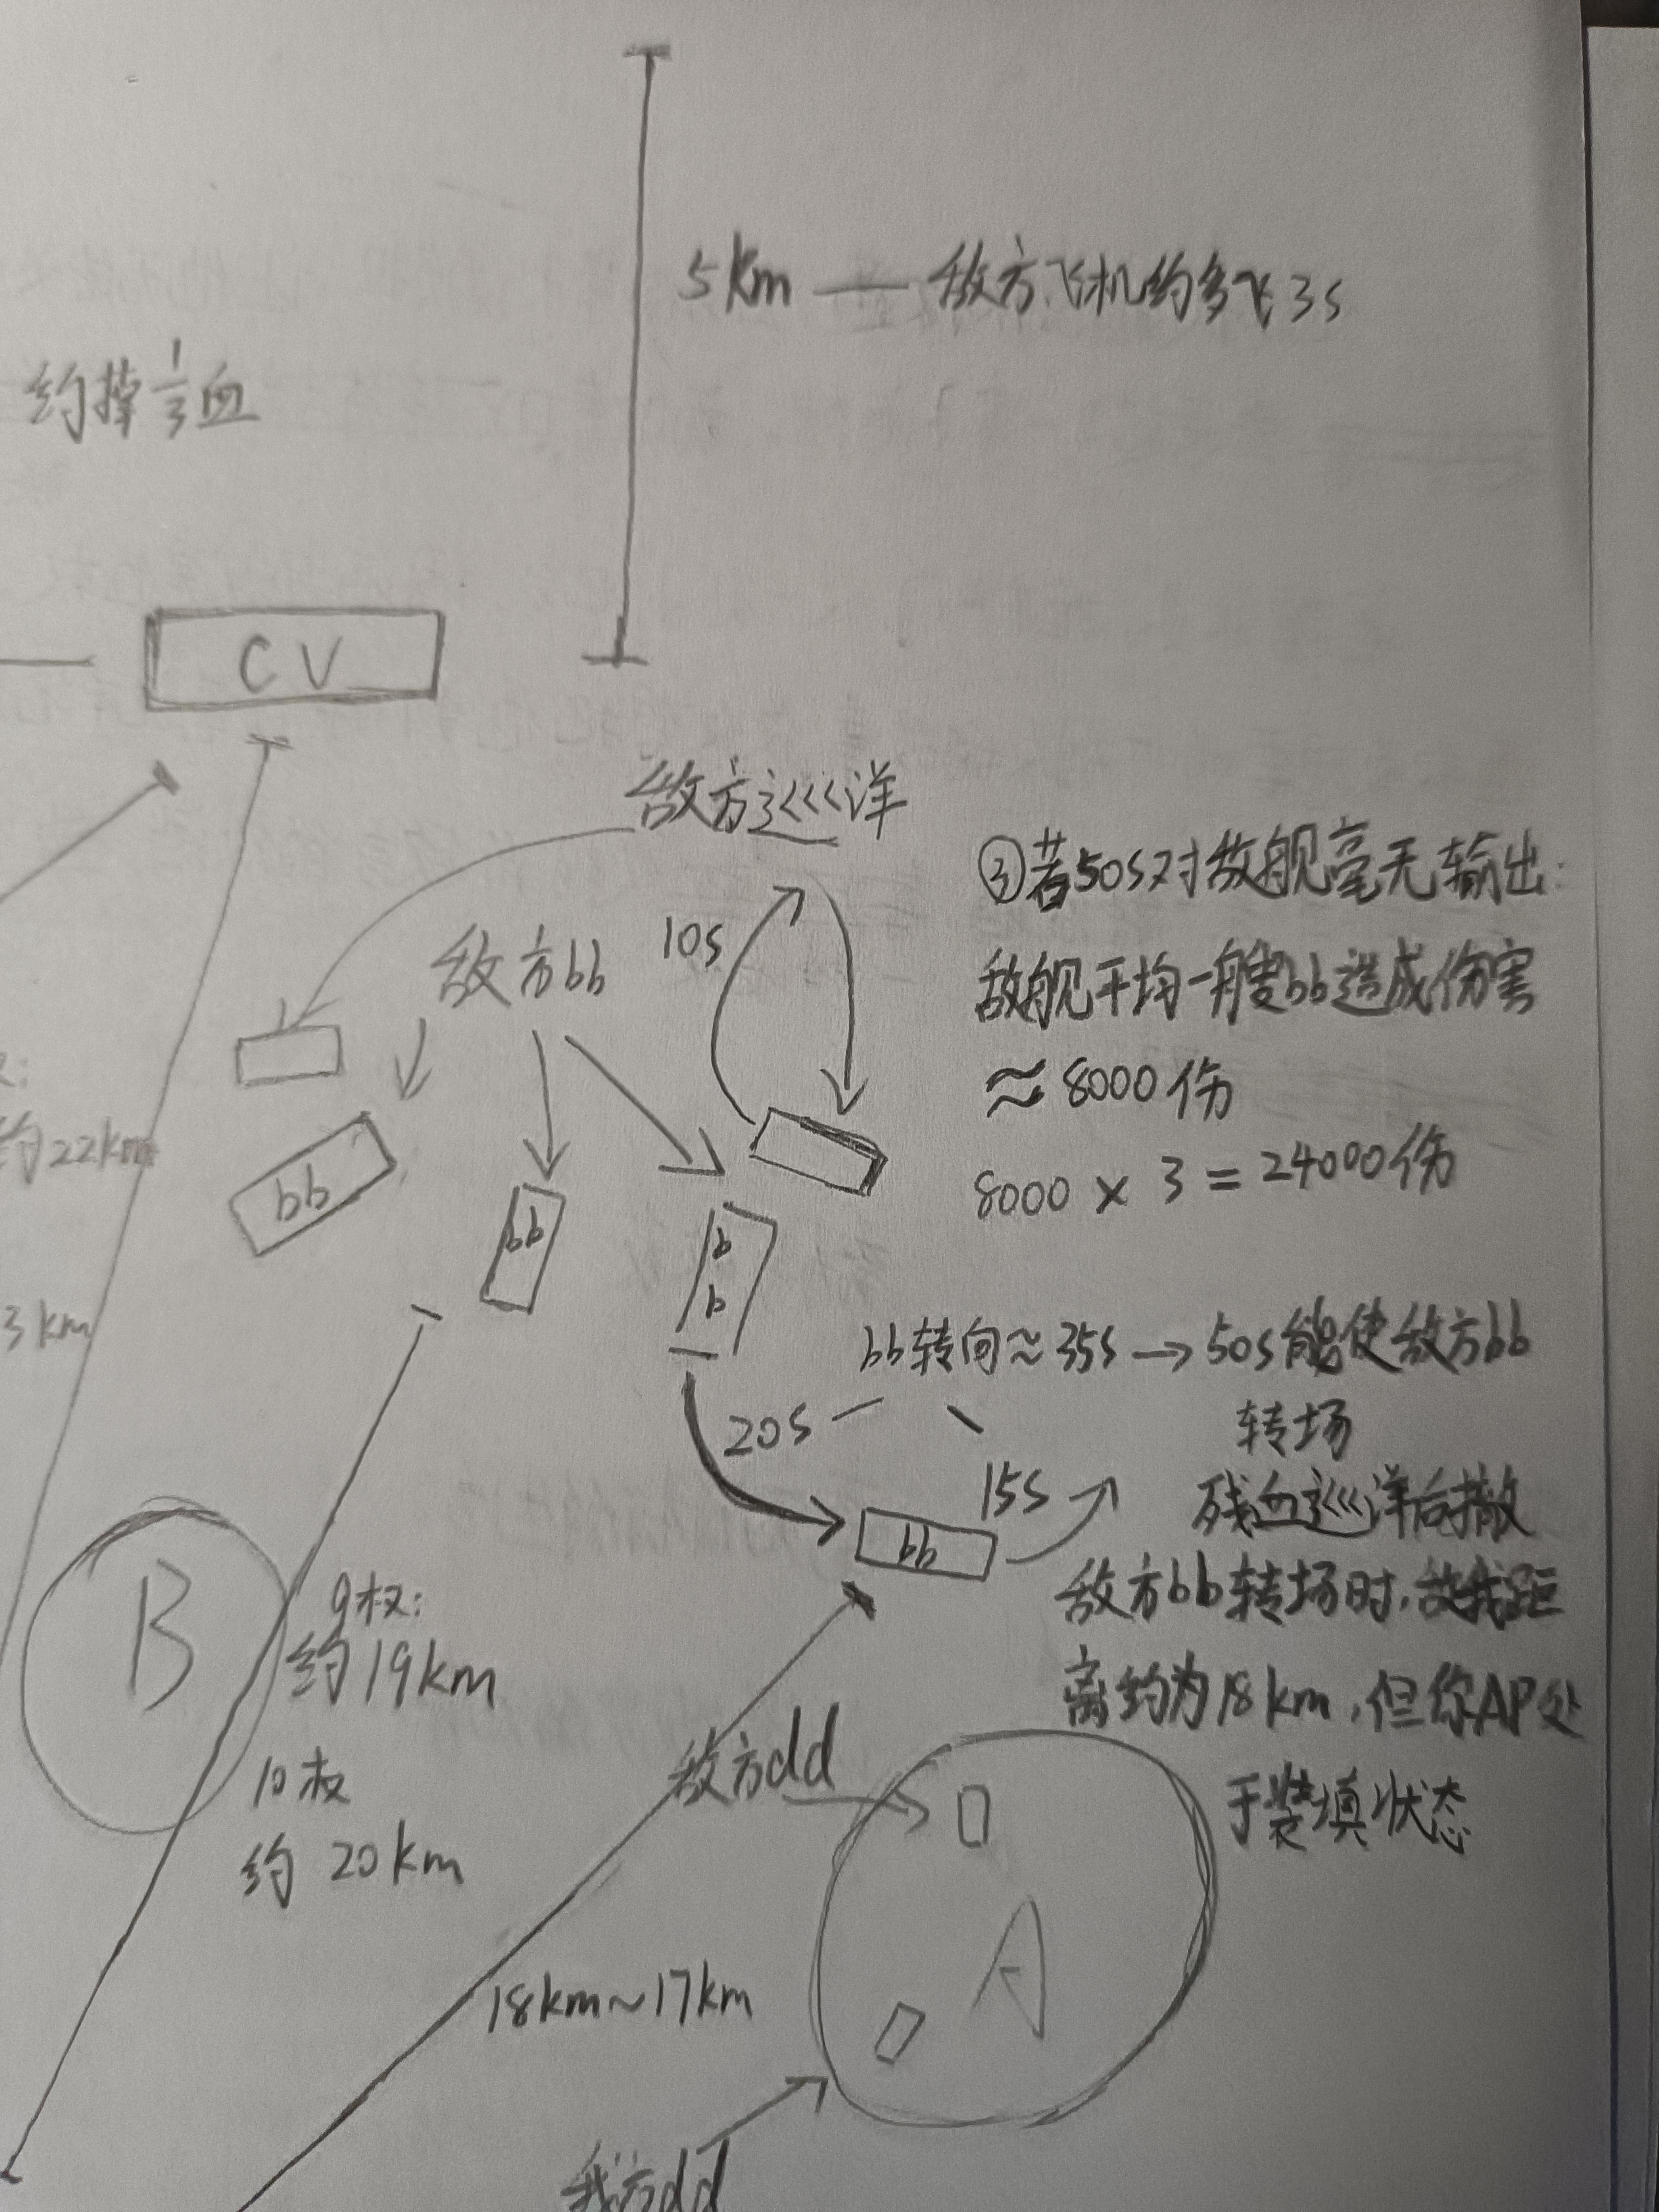 5km — 敌方飞机约多飞3s
约掉1/3血
CV
敌方巡洋
10s
敌方bb
③若50s对敌舰毫无输出:
敌舰平均一艘bb造成伤害
≈8000伤
8000 × 3 = 24000伤
约22km
bb
bb
bb
3km
bb转向≈35s→50s能使敌方bb
转场
20s
15s
bb
残血巡洋后撤
敌方bb转场时,敌我距
离约为18km,但你AP处
于装填状态
B
9权:
约19km
10权
约20km
敌方dd
A
18km~17km
我方dd